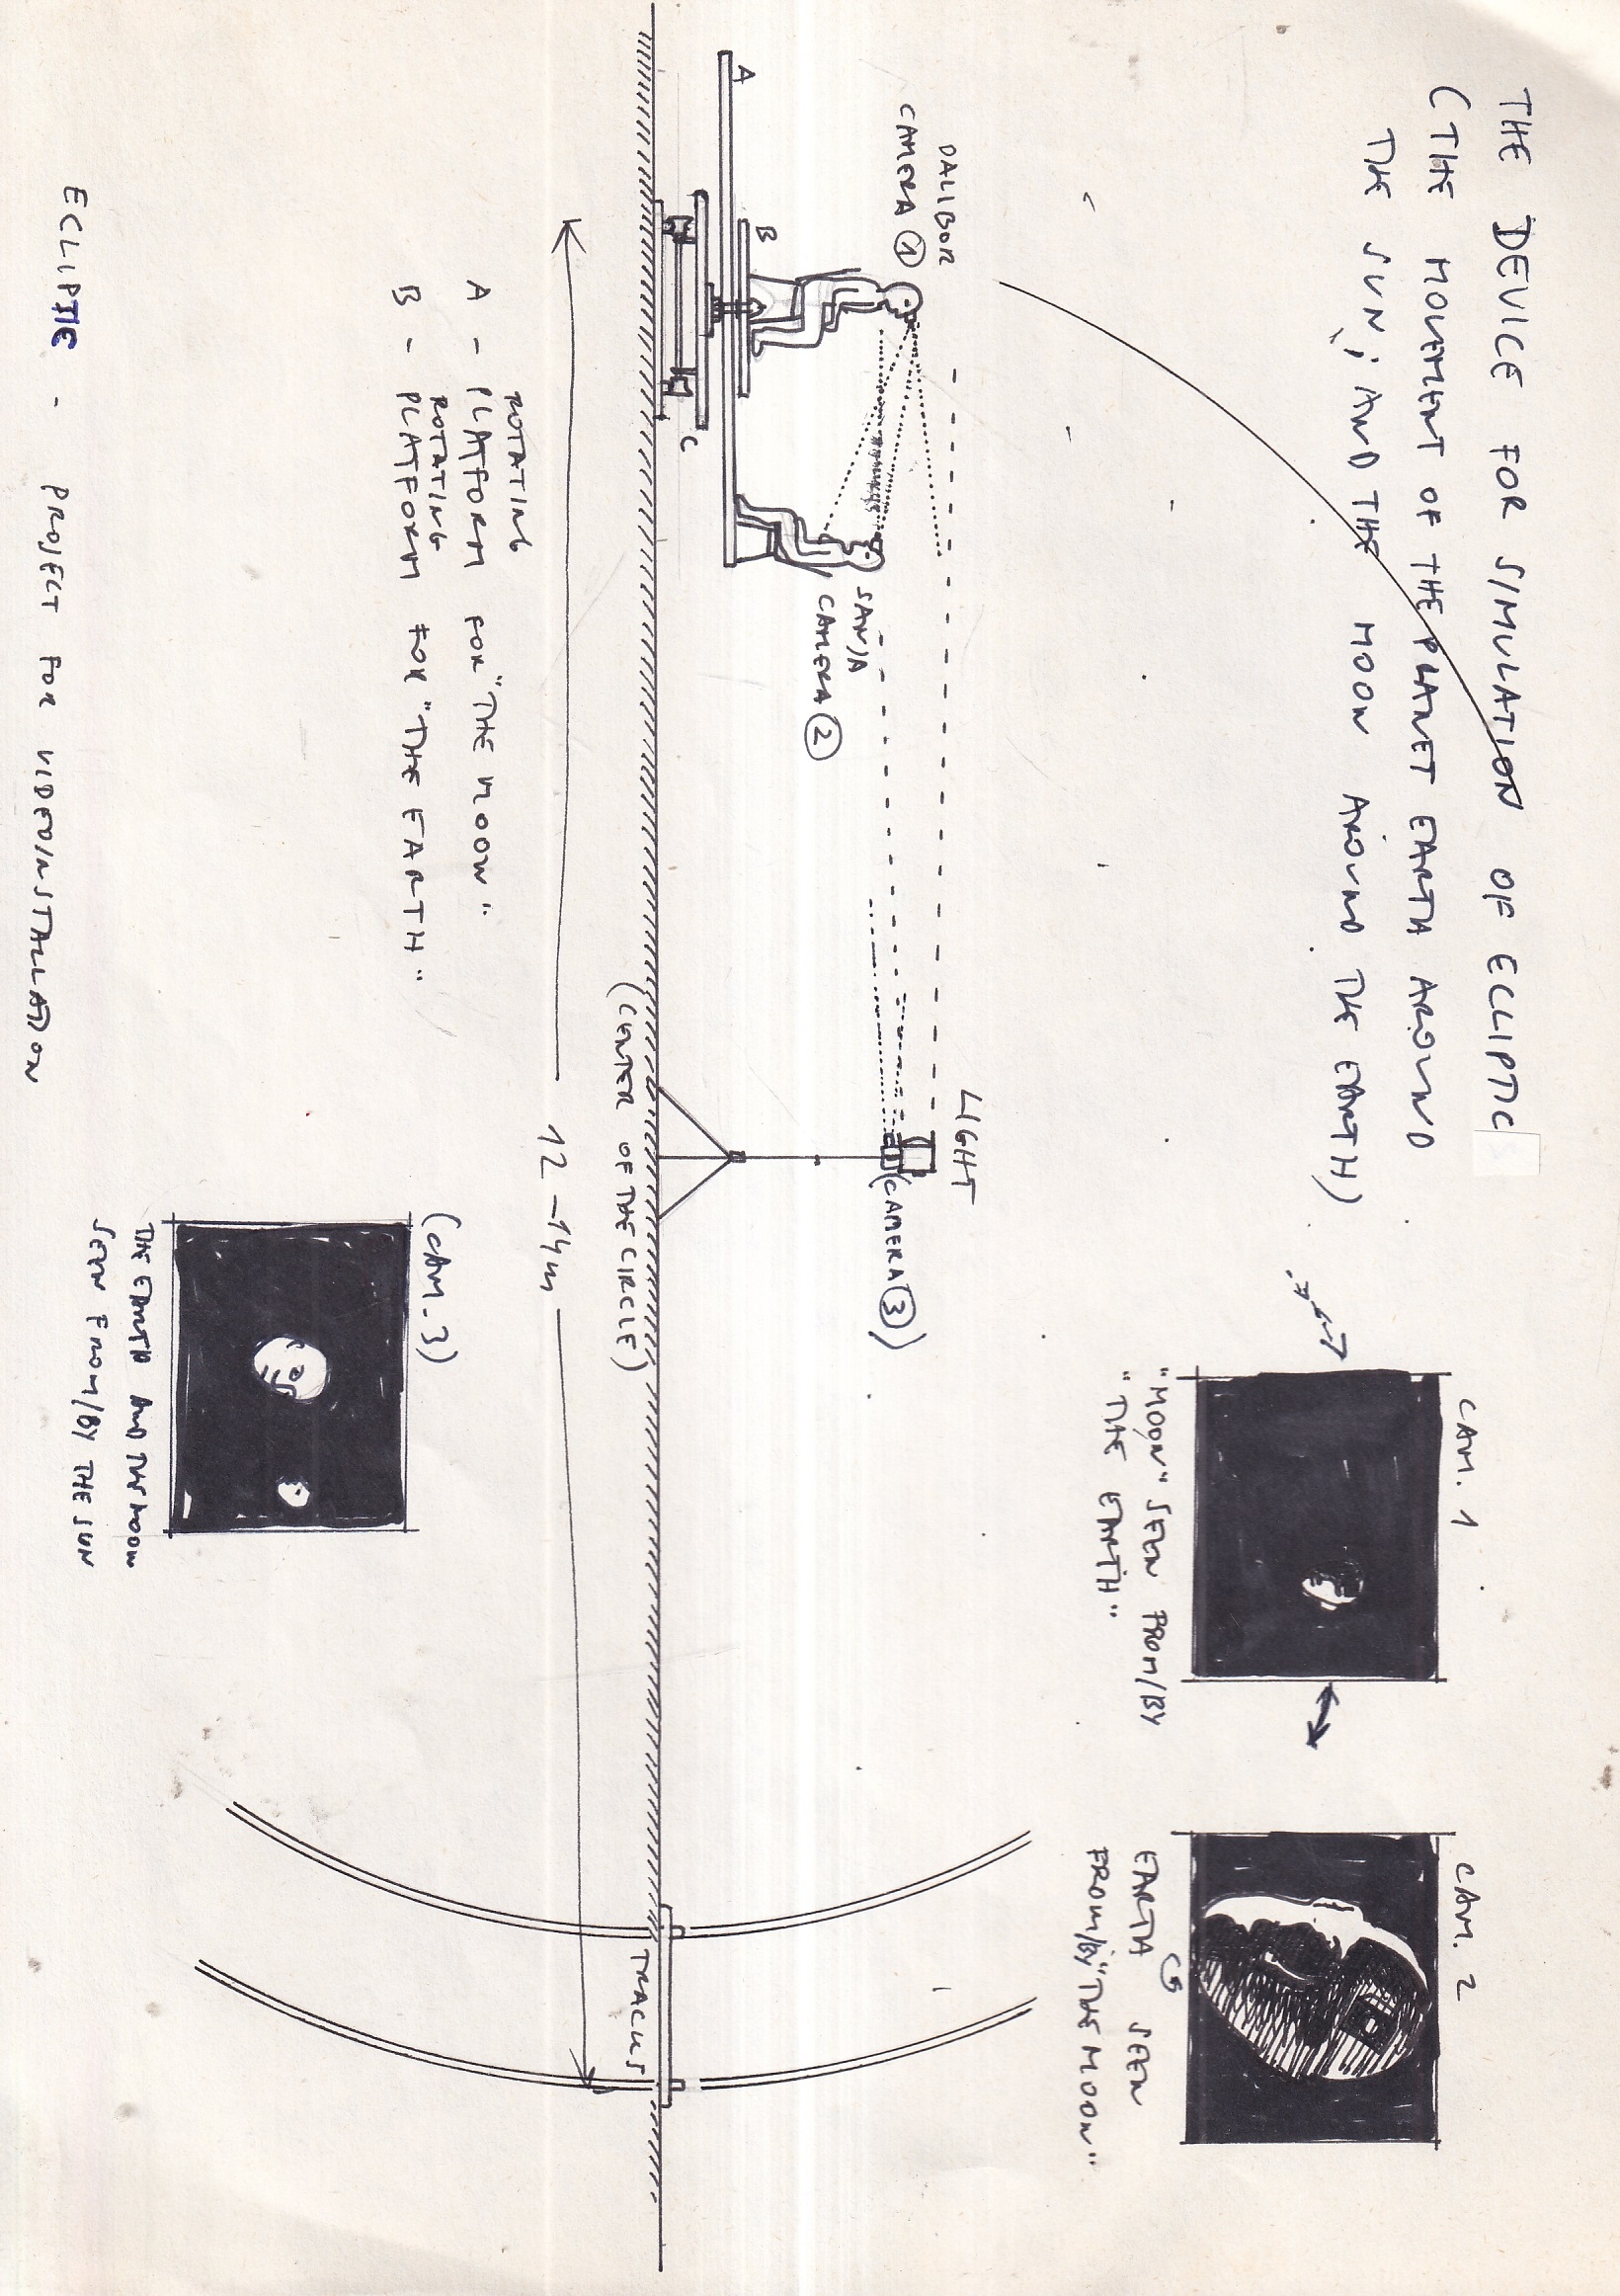 THE DEVICE FOR SIMULATION OF ECLIPTIC
(THE MOVEMENT OF THE PLANET EARTH AROUND
THE SUN, AND THE MOON AROUND THE EARTH)
DALIBOR
CAMERA 1
LIGHT
(CAMERA 3)
SANJA
CAMERA 2
A
B
C
(CENTER OF THE CIRCLE)
TRACKS
12 - 14 m
ROTATING
A - PLATFORM FOR "THE MOON"
ROTATING
B - PLATFORM FOR "THE EARTH"
CAM. 1
"MOON" SEEN FROM/BY
"THE EARTH"
CAM. 2
EARTH SEEN
FROM/BY "THE MOON"
(CAM. 3)
THE EARTH AND THE MOON
SEEN FROM/BY THE SUN
ECLIPTIC - PROJECT FOR VIDEOINSTALLATION